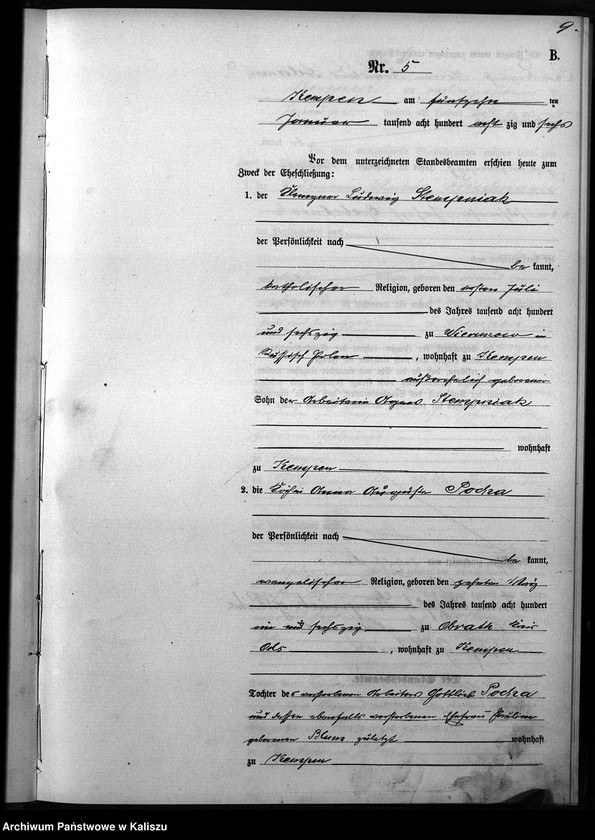 9.
B.
Nr. 5
Kempen am fünfzehn ten
Januar tausend acht hundert acht zig und sechs
Vor dem unterzeichneten Standesbeamten erschien heute zum
Zweck der Eheschließung:
1. der Ludwig Stempniak
der Persönlichkeit nach
be kannt,
katholischer Religion, geboren den ersten Juli
des Jahres tausend acht hundert
und sechszig zu Wieruszow in
Russisch Polen, wohnhaft zu Kempen
außerehelich geborener
Sohn der Arbeiterin Agnes Stempniak
wohnhaft
zu Kempen
2. die Köchin Anna Auguste Pocha
der Persönlichkeit nach
be kannt,
evangelischer Religion, geboren den zehnten
des Jahres tausend acht hundert
ein und sechszig zu Obrath Kreis
Oels, wohnhaft zu Kempen
Tochter des verstorbenen Arbeiters Gottlieb Pocha
und dessen ebenfalls verstorbenen Ehefrau Pauline
geborenen zuletzt wohnhaft
zu Kempen
Archiwum Państwowe w Kaliszu